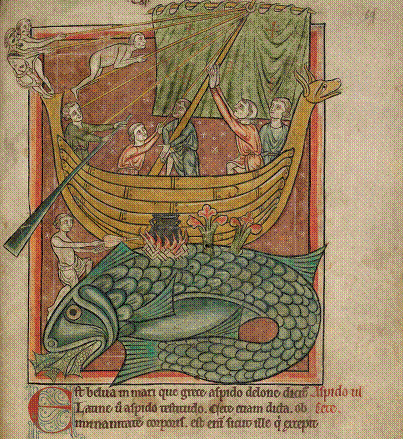 Est belua in mari que grece aspido delone dicitur. Aspido ul
Latine u aspido testudo. Cete etiam dicta. ob cete.
inmanitatē corporis. est enī sicut ille q̄ excepit